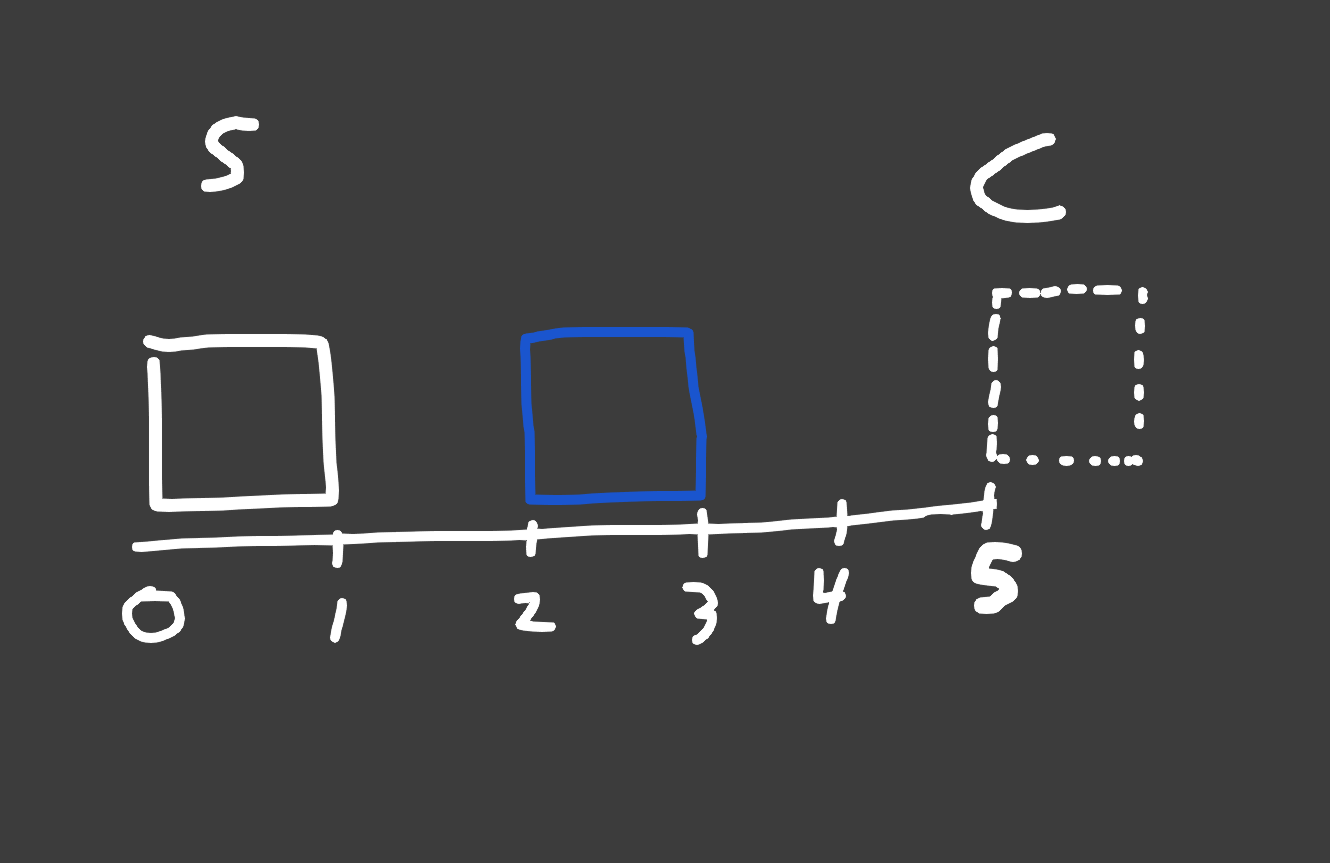 S C
0 1 2 3 4 5